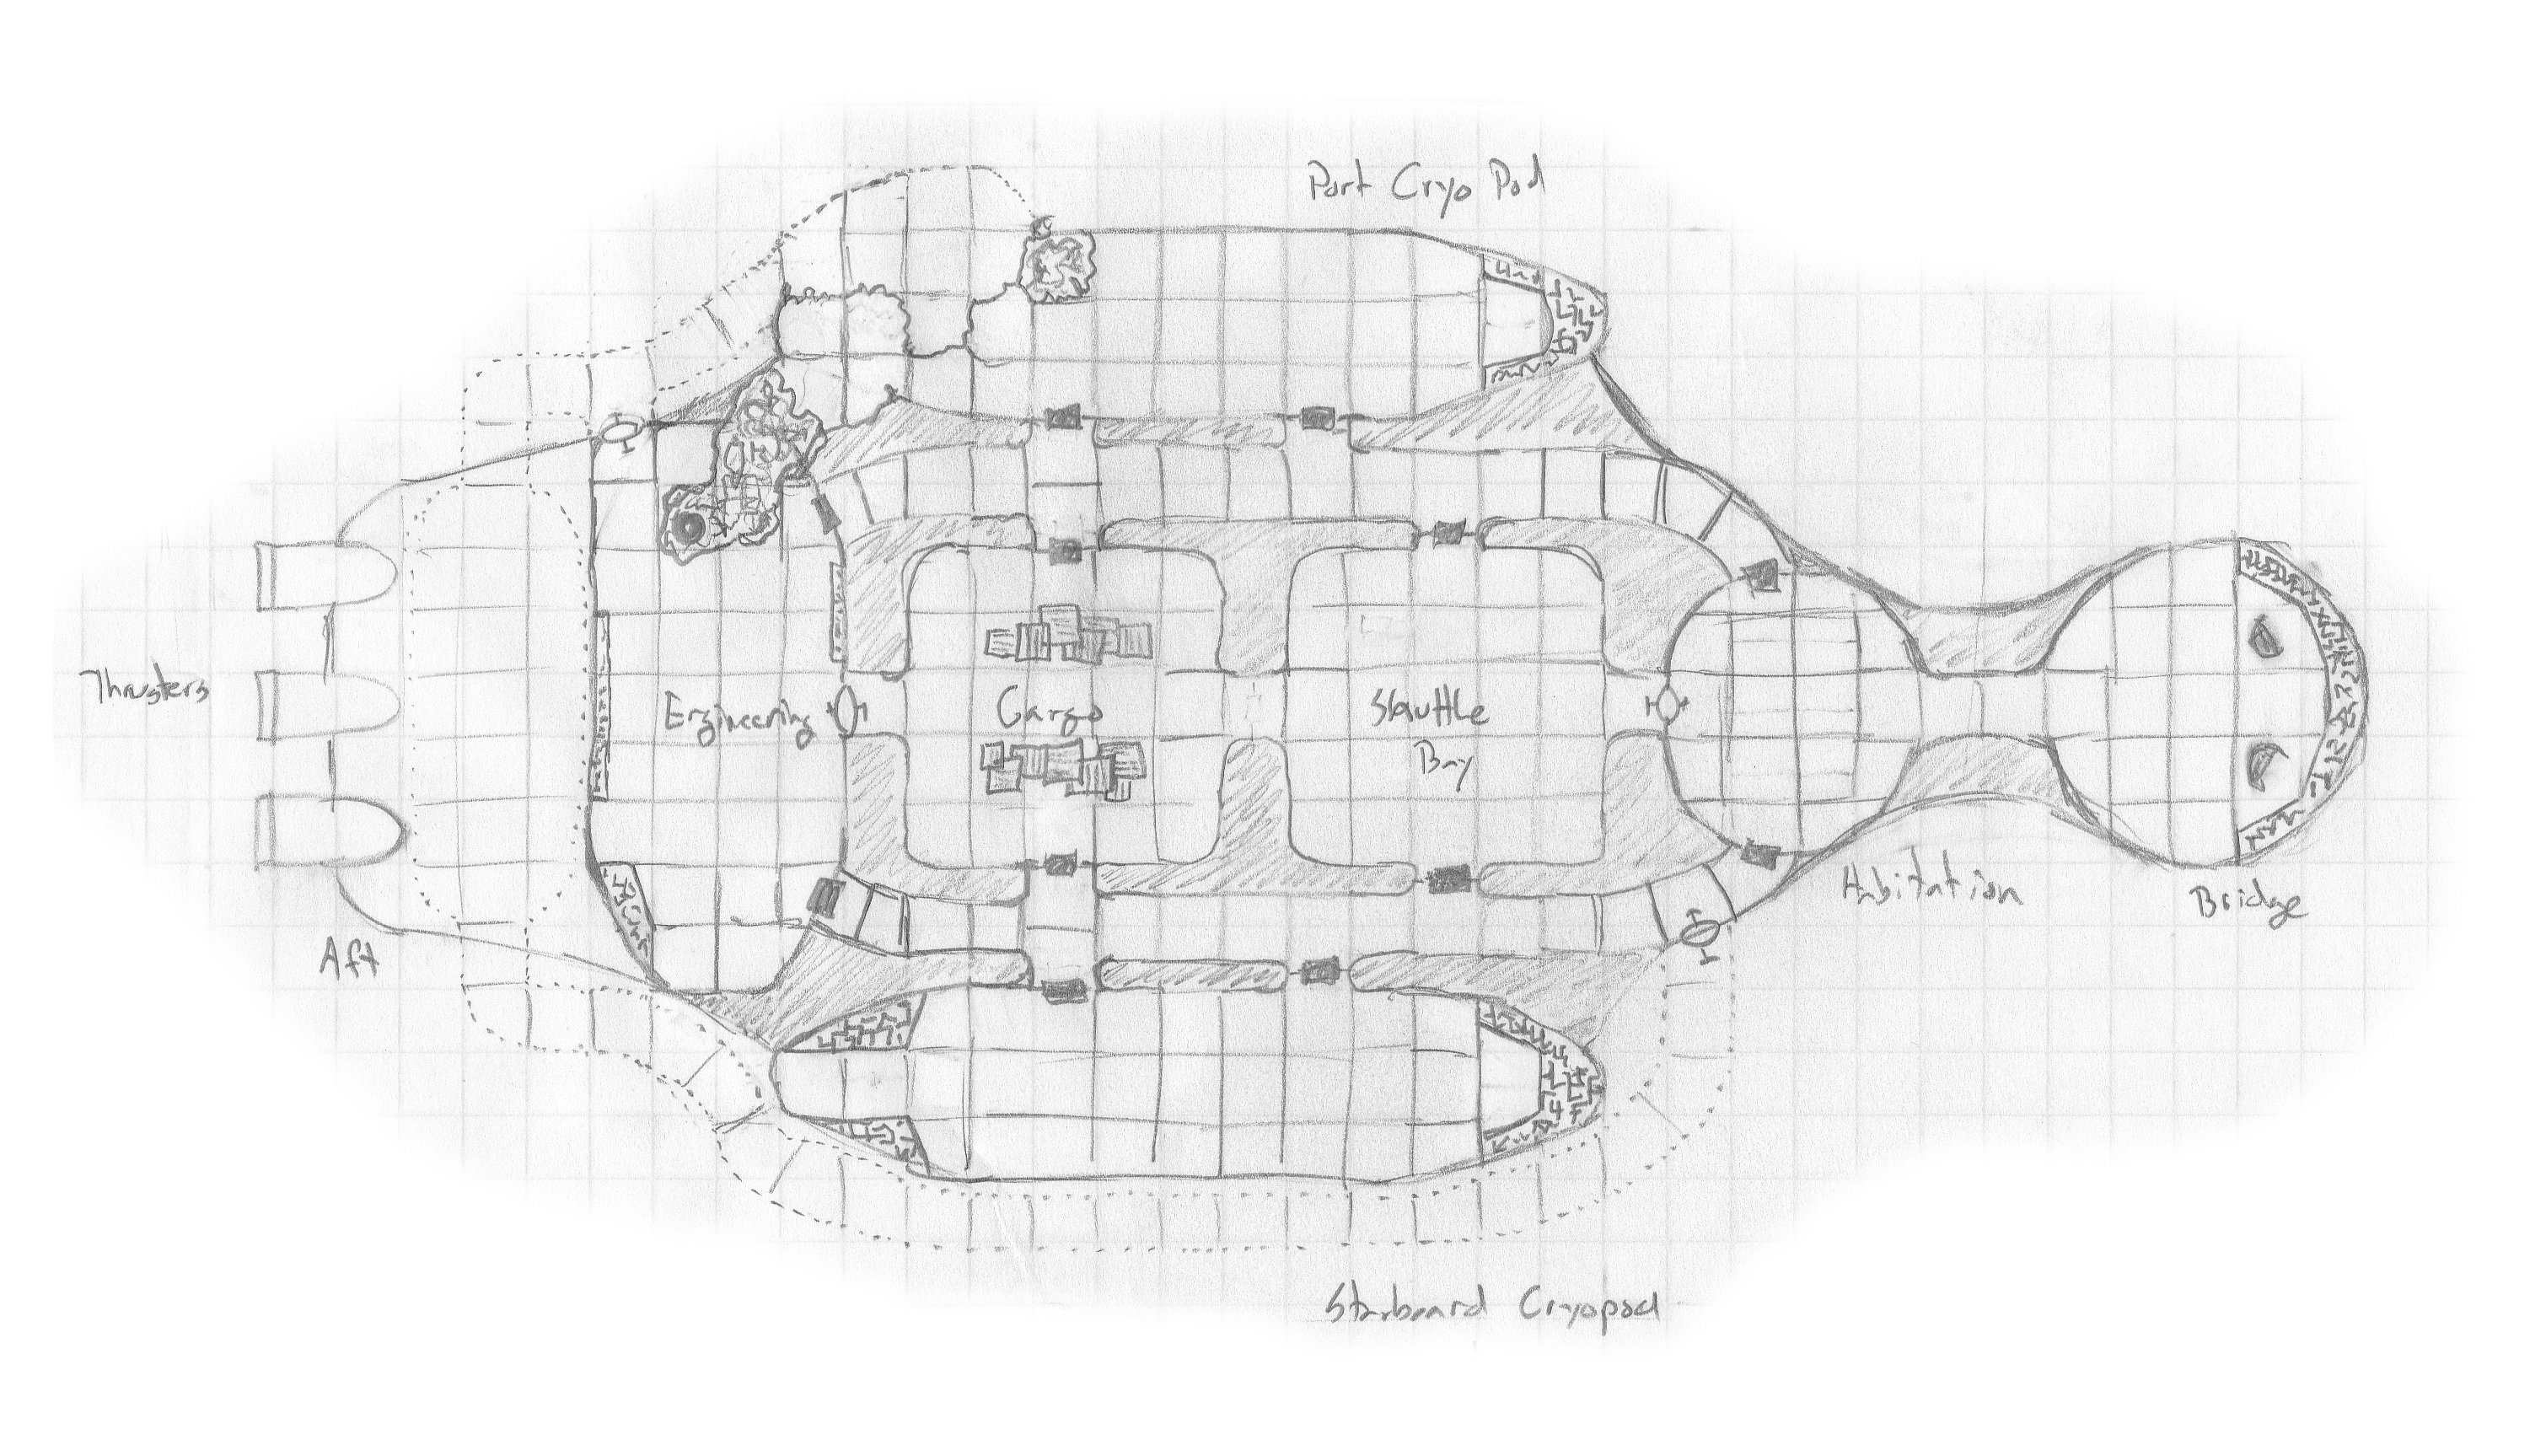 Port Cryo Pod
Thrusters
Engineering
Cargo
Shuttle
Bay
Habitation
Bridge
Aft
Starboard Cryopod